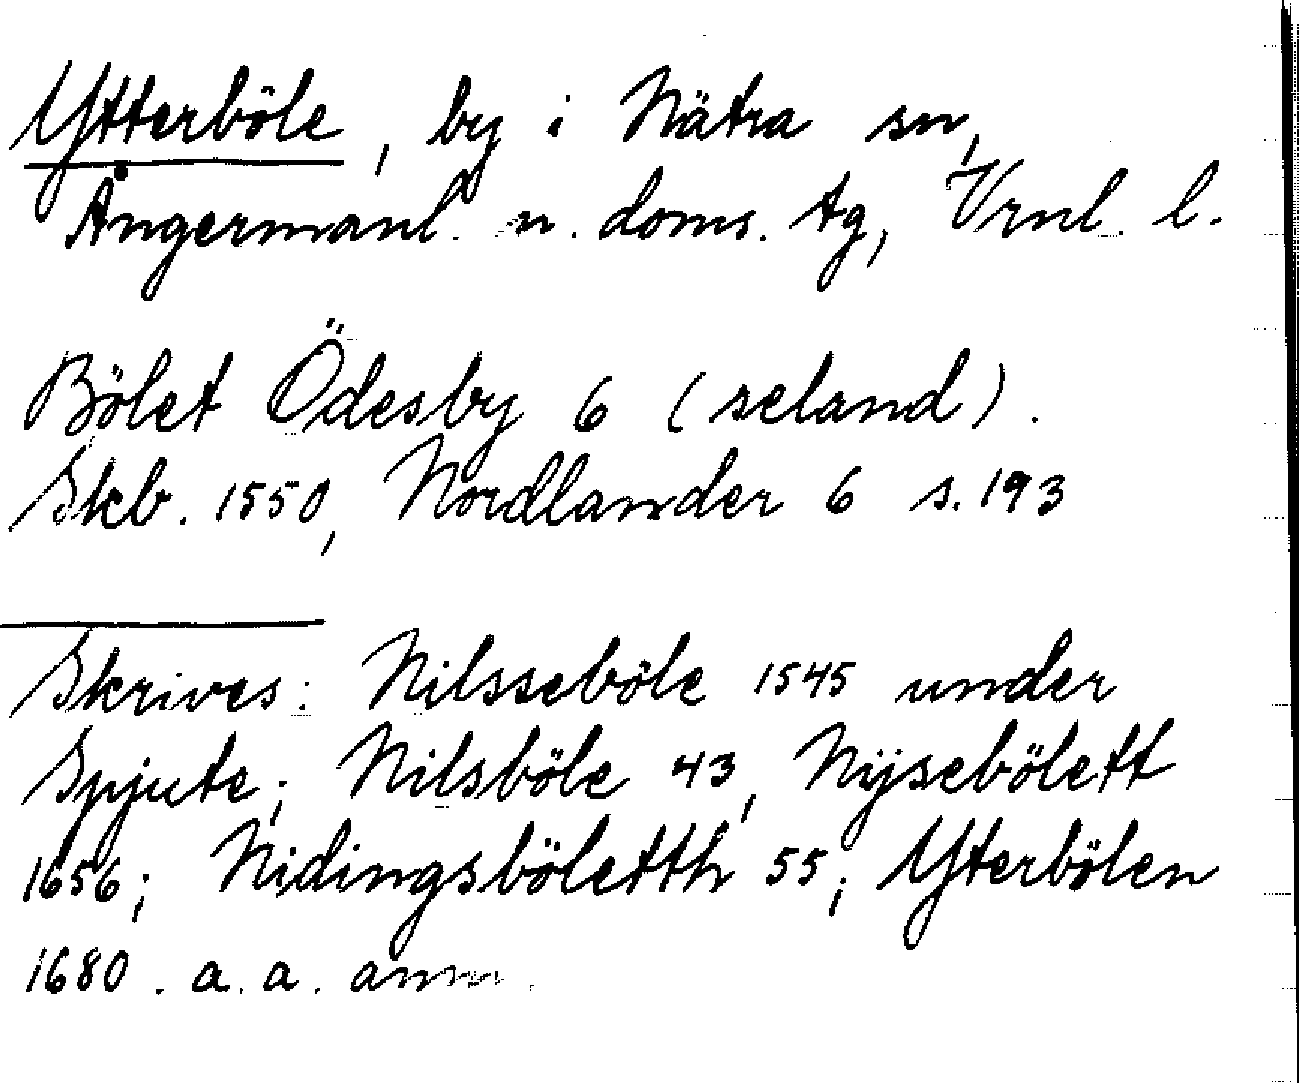 Ytterböle, by i Nätra sn,
Ångermanl. n. doms. tg, Vrnl. l.
Bölet Ödesby 6 (seland).
Skb. 1550, Nordlander 6 s. 193
Skrives: Nilsseböle 1545 under
Spjute; Nilsböle 43, Nijsebölett
1656; Nidingsböletth 55; Yterbölen
1680. a. a. anm.